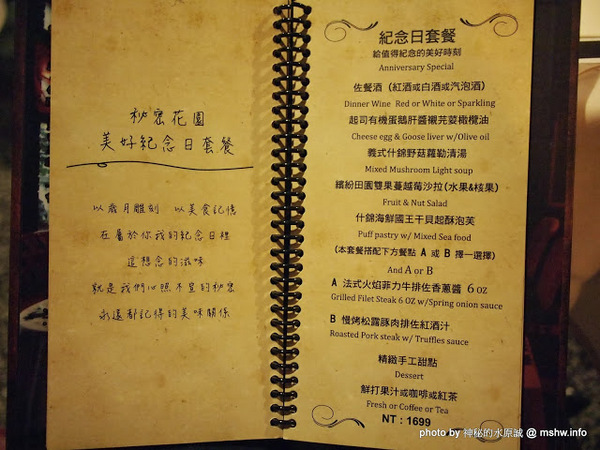 秘密花園
美好紀念日套餐
以歲月雕刻 以美食記憶
在屬於你我的紀念日裡
這想念的滋味
就是我們心照不宣的秘密
永遠都記得的美味關係
紀念日套餐
給值得紀念的美好時刻
Anniversary Special
佐餐酒（紅酒或白酒或汽泡酒）
Dinner Wine Red or White or Sparkling
起司有機蛋鵝肝醬襯芫荽橄欖油
Cheese egg & Goose liver w/Olive oil
義式什錦野菇蘿勒清湯
Mixed Mushroom Light soup
繽紛田園雙果蔓越莓沙拉(水果&核果)
Fruit & Nut Salad
什錦海鮮國王干貝起酥泡芙
Puff pastry w/ Mixed Sea food
(本套餐搭配下方餐點 A 或 B 擇一選擇)
And A or B
A 法式火焰菲力牛排佐香蔥醬 6 OZ
Grilled Filet Steak 6 OZ w/Spring onion sauce
B 慢烤松露豚肉排佐紅酒汁
Roasted Pork steak w/ Truffles sauce
精緻手工甜點
Dessert
鮮打果汁或咖啡或紅茶
Fresh or Coffee or Tea
NT : 1699
photo by 神秘的水原誠 @ mshw.info